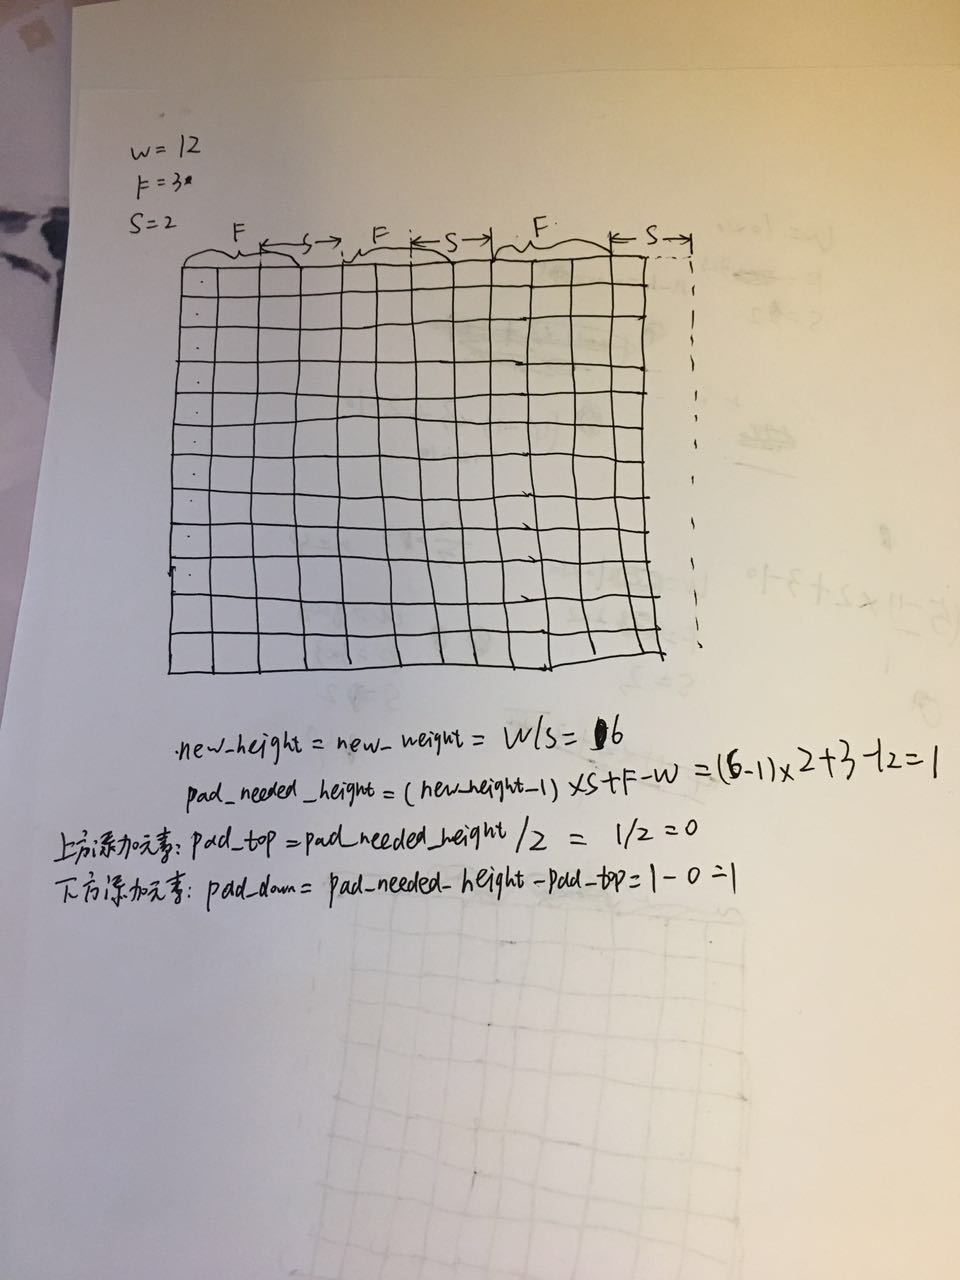 W= 12
F=3
S=2
F S F S F S
new_height = new_weight = W/S= 6
pad_needed_height=(new_height-1) ×S+F-W =(6-1)×2+3-12=1
上方添加元素: pad_top=pad_needed_height/2 = 1/2=0
下方添加元素: pad_down= pad_needed-height-pad_top=1-0=1